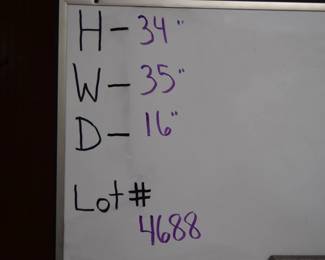 H - 34"
W - 35"
D - 16"
Lot #
4688